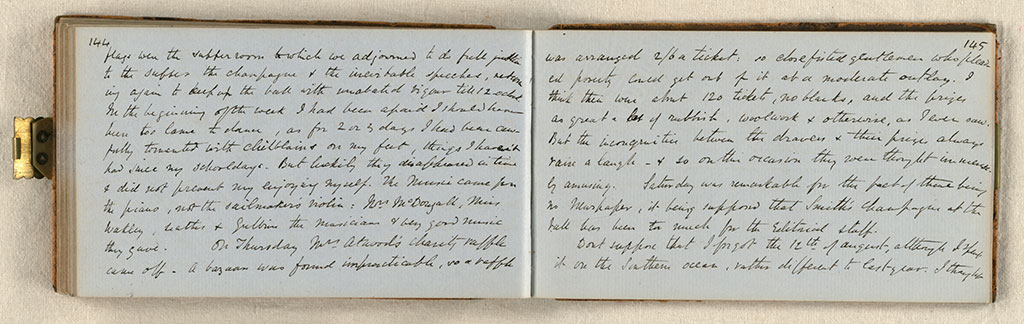 144
flags was the supper room to which we adjourned to do full justice
to the supper the champagne & the inevitable speeches, return
ing again to keep up the ball with unabated vigour till 12 oclock
In the beginning of the week I had been afraid I should have
been too lame to dance, as for 2 or 3 days I had been care
fully tormented with chilblains on my feet, things I havent
had since my schooldays. But luckily they disappeared in time
& did not prevent my enjoying myself. The music came from
the piano, not the sailmakers violin: Mrs McDougall, Miss
& Gibbon the musician & very good music
they gave. On Thursday Mrs Atwoods charity raffle
came off - A bazaar was found impracticable, so a raffle
145
was arranged 2/6 a ticket: so closefisted gentlemen who pleas
ed poverty could get out of it at a moderate outlay. I
think there were about 120 tickets, no blanks, and the prizes
as great a lot of rubbish, woolwork & otherwise, as I ever saw.
But the incongruities between the drawers & their prizes always
raise a laugh - & so on this occasion they were thought immense
ly amusing. Saturday was remarkable for the fact of there being
no Newspaper, it being supposed that Smith's Champagne at the
ball has been too much for the Editorial staff.
Dont suppose that I forgot the 12th of august, although I spent
it on the Southern ocean, rather different to last year. I thought